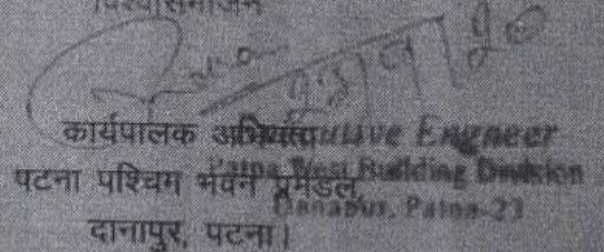 विश्वासभाजन
कार्यपालक अभियंता
Executive Engineer
पटना पश्चिम भवन प्रमंडल,
Patna West Building Division
दानापुर, पटना।
Danapur, Patna-23